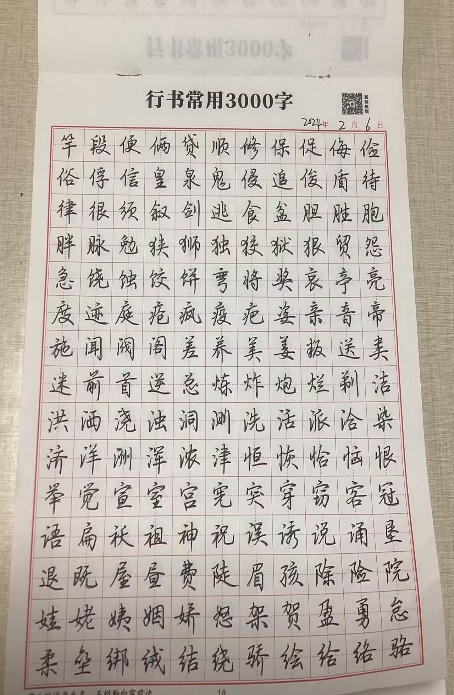 行书常用3000字
2024年 2月 6日
竿段便俩贷顺修保促侮俭
俗俘信皇泉鬼侵追俊盾待
律很须叙剑逃食盆胆胜胞
胖脉勉狭狮独狡狱狠贸怨
急饶蚀饺饼弯将奖哀亭亮
度迹庭疮疯疫疤姿亲音帝
施闻阀阁差养美姜叛送类
迷前首逆总炼炸炮烂剃洁
洪洒浇浊洞测洗活派洽染
济洋洲浑浓津恒恢恰恼恨
举觉宣室宫宪突穿窃客冠
语扁袄祖神祝误诱说诵垦
退既屋昼费陡眉孩除险院
娃姥姨姻娇怒架贺盈勇怠
柔垒绑绒结绕骄绘给络骆